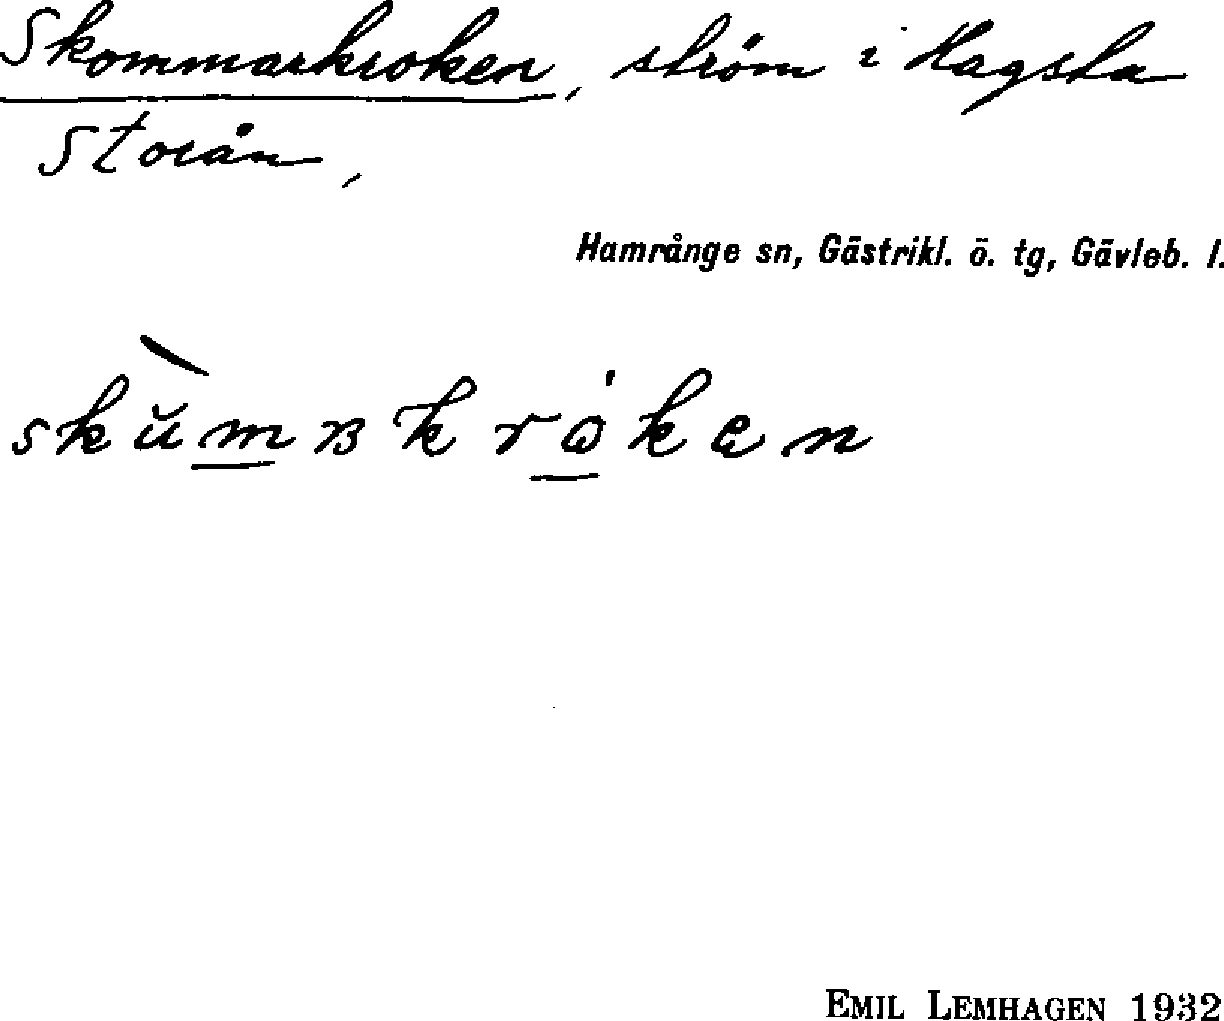 Skommarkroken, ström i Hagsta
Storån,
Hamrånge sn, Gästrikl. ö. tg, Gävleb. l.
skŭ̀mʙkrɷ́ken
EMIL LEMHAGEN 1932